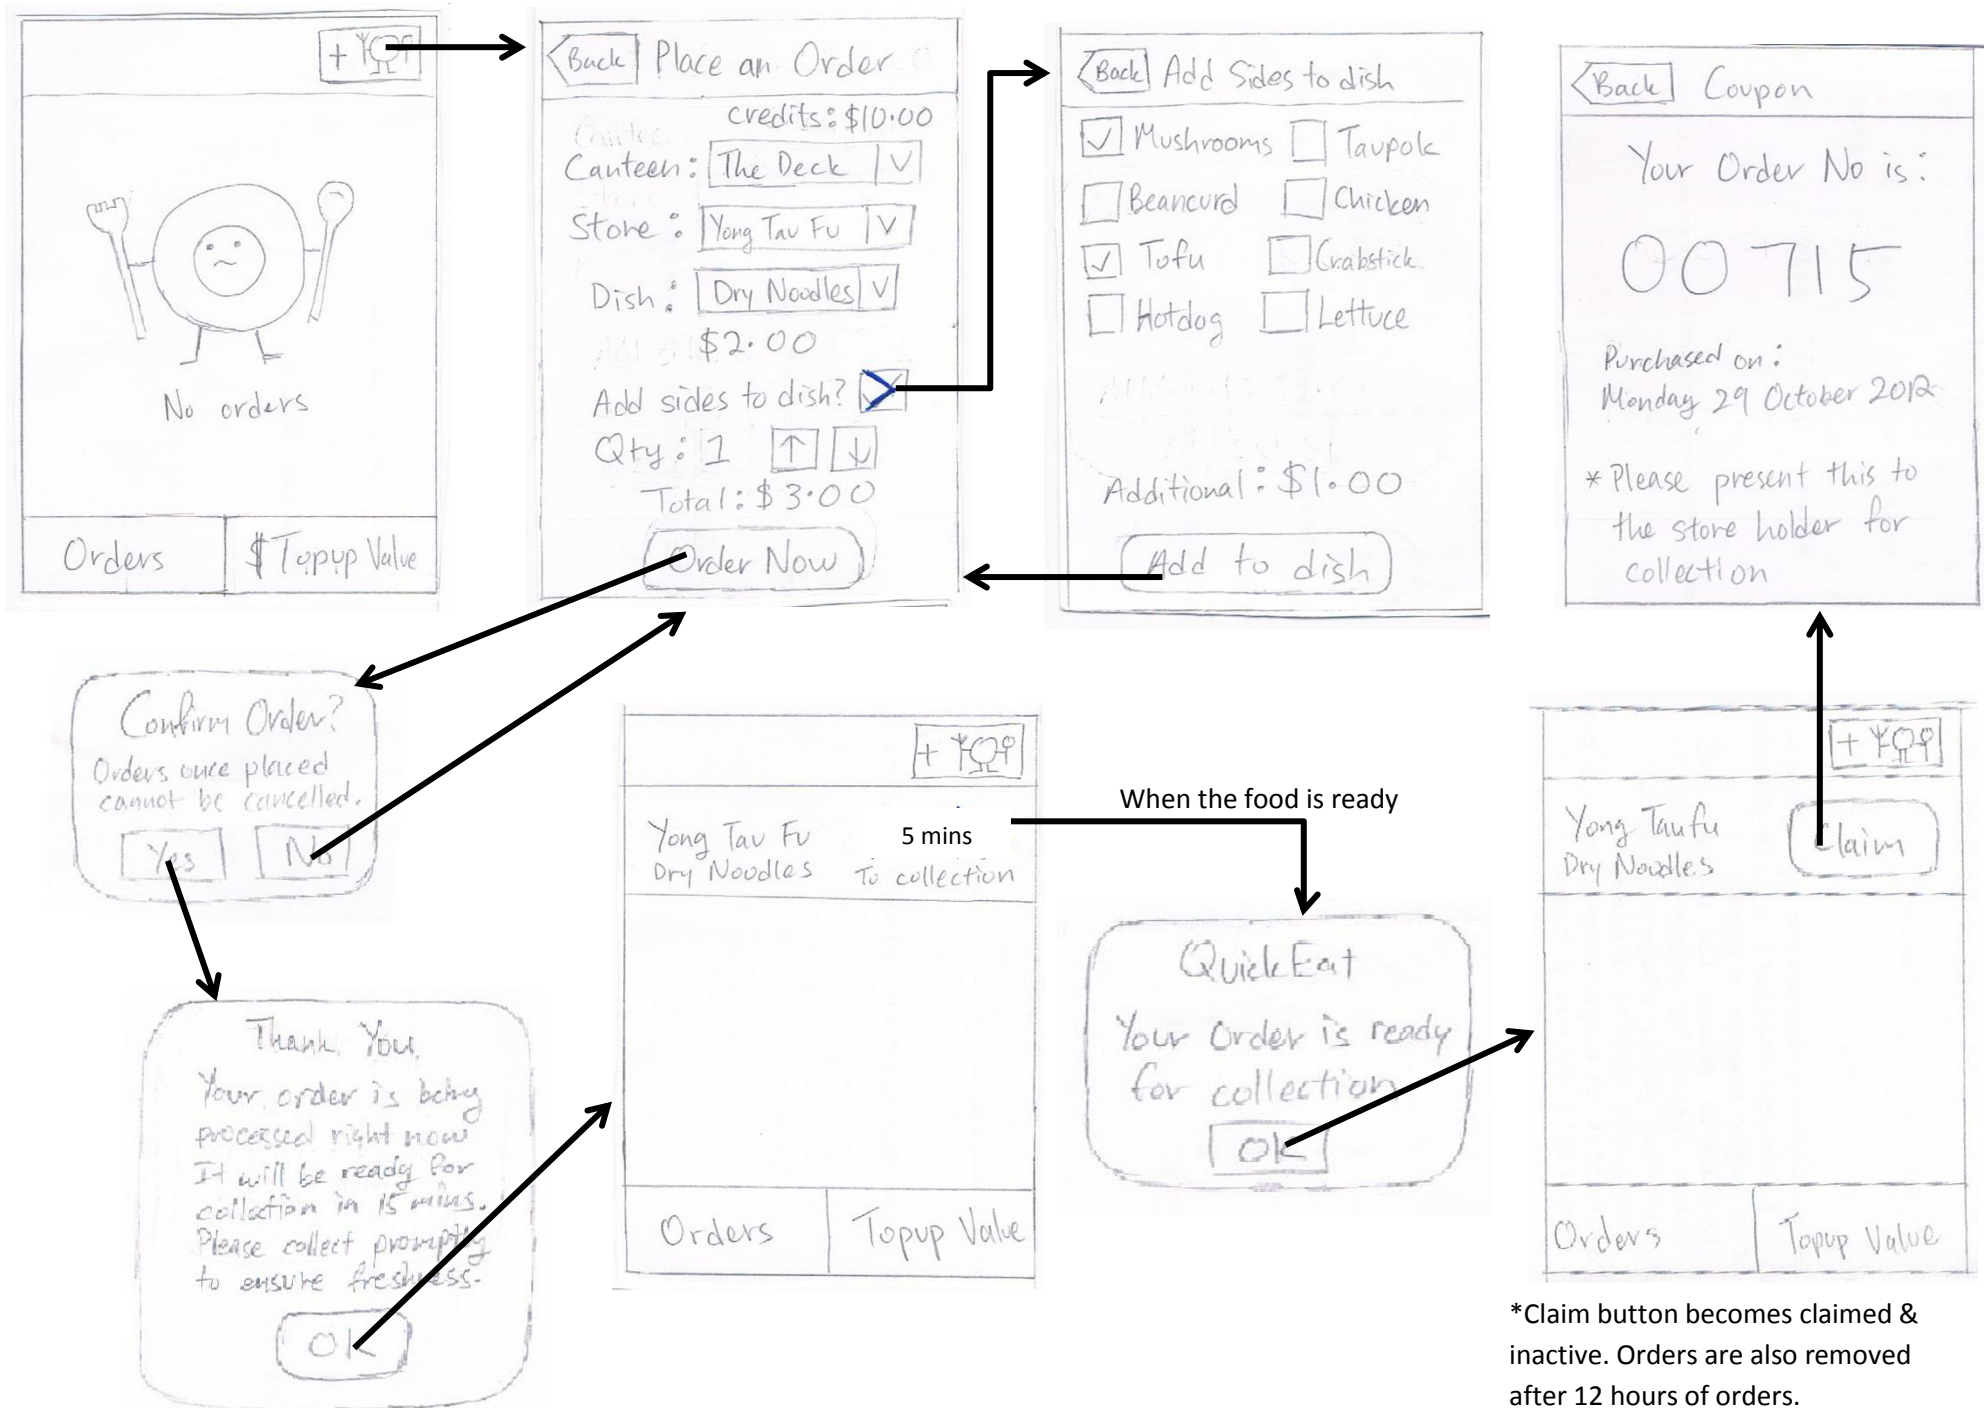 +
No orders
Orders
$ Topup Value
Back
Place an Order
credits: $10.00
Canteen: The Deck V
Store: Yong Tau Fu V
Dish: Dry Noodles V
$2.00
Add sides to dish?
Qty: 1 ↑ ↓
Total: $3.00
Order Now
Back
Add Sides to dish
Mushrooms
Taupok
Beancurd
Chicken
Tofu
Crabstick
Hotdog
Lettuce
Additional: $1.00
Add to dish
Back
Coupon
Your Order No is:
00715
Purchased on:
Monday 29 October 2012
* Please present this to
the store holder for
collection
Confirm Order?
Orders once placed
cannot be cancelled.
Yes
No
Thank You.
Your order is being
processed right now
It will be ready for
collection in 15 mins.
Please collect promptly
to ensure freshness.
OK
+
Yong Tau Fu
Dry Noodles
5 mins
To collection
Orders
Topup Value
When the food is ready
QuickEat
Your Order is ready
for collection
OK
+
Yong Taufu
Dry Noodles
Claim
Orders
Topup Value
*Claim button becomes claimed &
inactive. Orders are also removed
after 12 hours of orders.